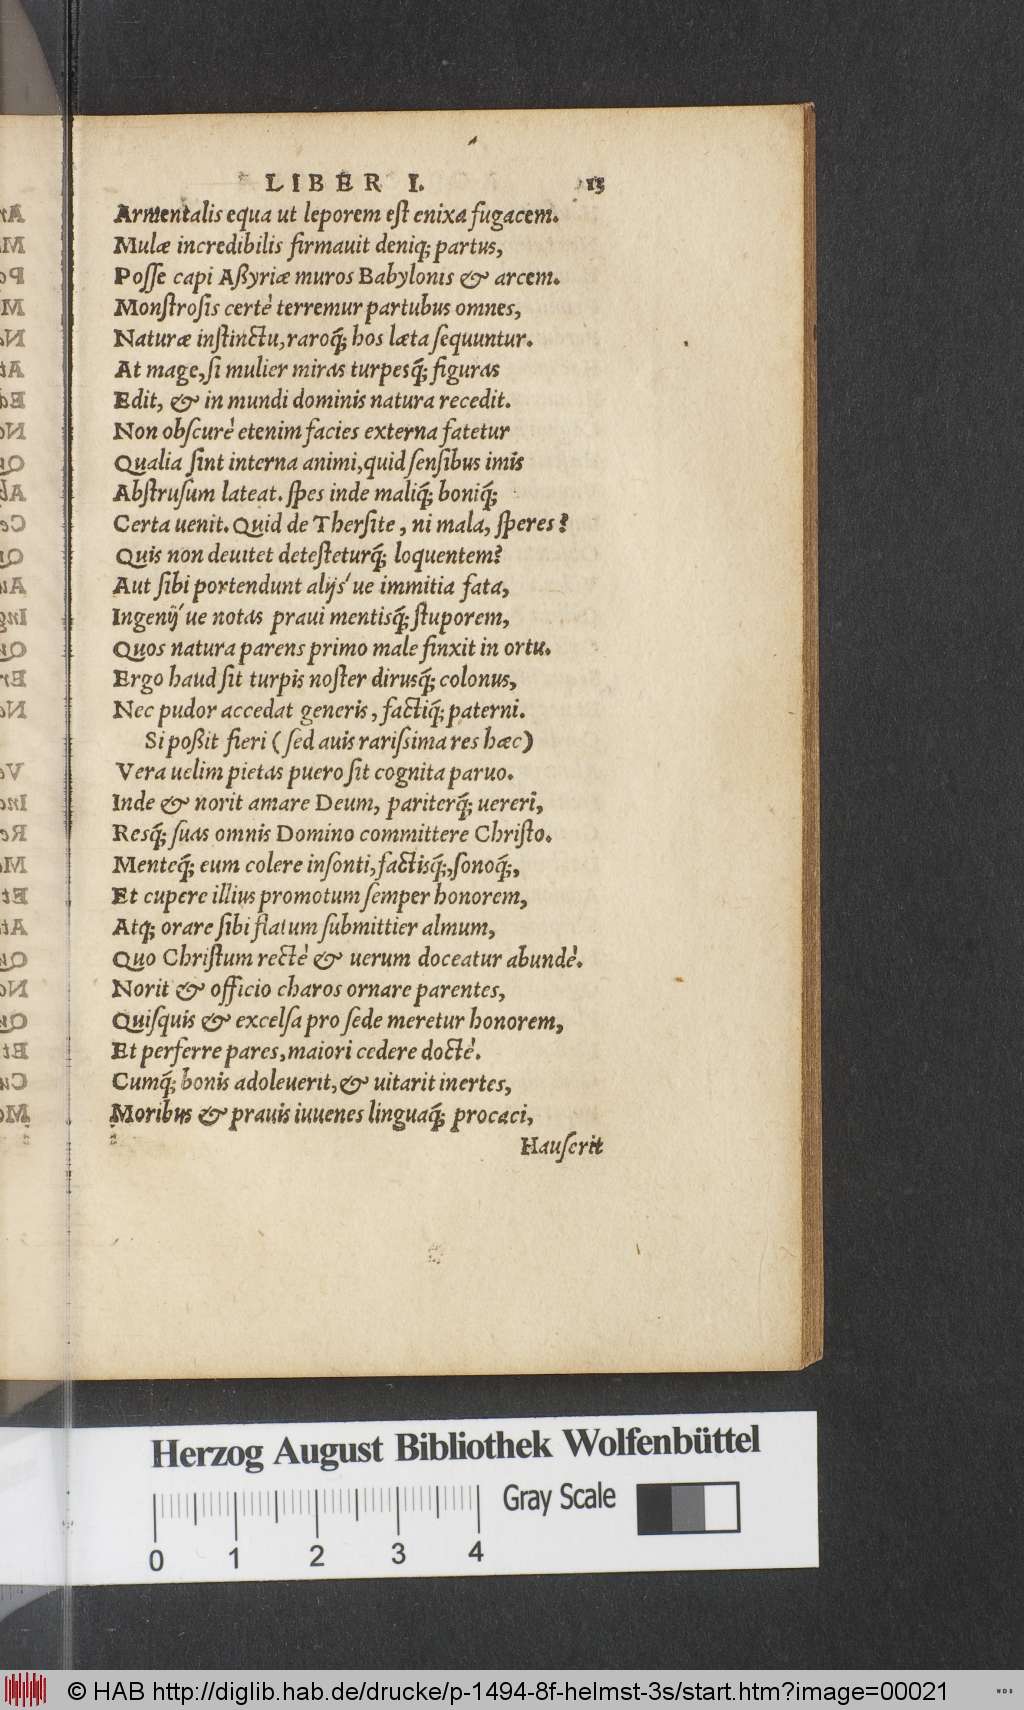 LIBER I. 13
Armentalis equa ut leporem eſt enixa fugacem.
Mulæ incredibilis firmauit deniq; partus,
Poſſe capi Aßyriæ muros Babylonis & arcem.
Monſtroſis certè terremur partubus omnes,
Naturæ inſtinctu, raroq́; hos læta ſequuntur.
At mage, ſi mulier miras turpesq́; figuras
Edit, & in mundi dominis natura recedit.
Non obſcurè etenim facies externa fatetur
Qualia ſint interna animi, quid ſenſibus imis
Abſtruſum lateat. ſpes inde maliq́; boniq́;
Certa uenit. Quid de Therſite, ni mala, ſperes?
Quis non deuitet deteſteturq́; loquentem?
Aut ſibi portendunt alijs'ue immitia fata,
Ingenij'ue notas praui mentisq́; ſtuporem,
Quos natura parens primo male finxit in ortu.
Ergo haud ſit turpis noſter dirusq́; colonus,
Nec pudor accedat generis, factiq́; paterni.
Si poßit fieri (ſed auis rariſsima res hæc)
Vera uelim pietas puero ſit cognita paruo.
Inde & norit amare Deum, pariterq́; uereri,
Resq́; ſuas omnis Domino committere Chriſto.
Menteq́; eum colere inſonti, factisq́;, ſonoq́;,
Et cupere illius promotum ſemper honorem,
Atq; orare ſibi flatum ſubmittier almum,
Quo Chriſtum rectè & uerum doceatur abundè.
Norit & officio charos ornare parentes,
Quiſquis & excelſa pro ſede meretur honorem,
Et perferre pares, maiori cedere doctè.
Cumq́; bonis adoleuerit, & uitarit inertes,
Moribus & prauis iuuenes linguaq́; procaci,
Hauſerit
Herzog August Bibliothek Wolfenbüttel
Gray Scale
0 1 2 3 4
© HAB http://diglib.hab.de/drucke/p-1494-8f-helmst-3s/start.htm?image=00021